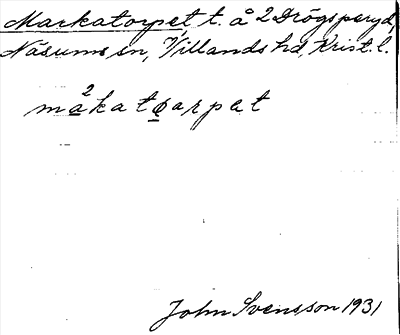 Markatorpet, t. å 2 Drögsperyd,
Näsums sn, Villands hd, Krist. l.
2
makatøarpat
John Svensson 1931